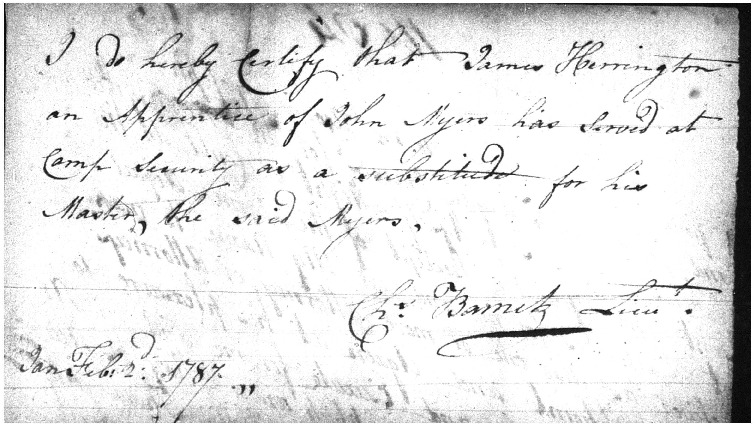 I do hereby Certify that James Herrington
an Apprentice of John Myers has Served at
Camp Security as a substitude for his
Master, the said Myers.
Chr. Barnitz Lieut.
Jan Feb. 2d. 1787 "